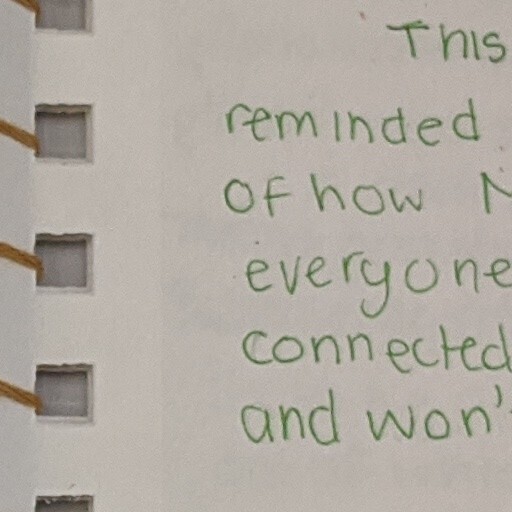 This
reminded
of how
everyone
connected
and won'